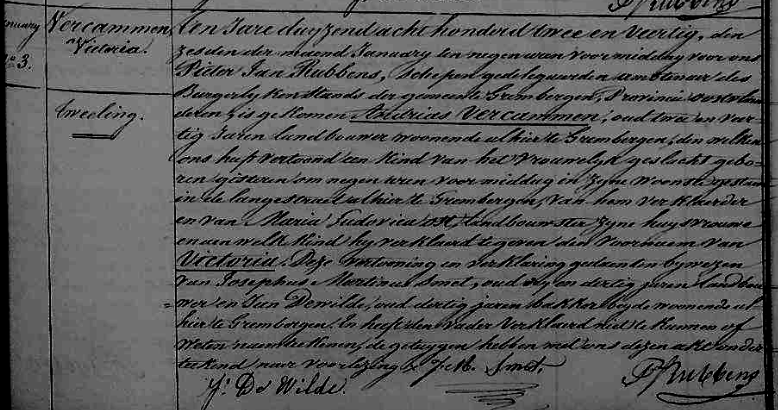 PRubbens
January
N° 3.
Vercammen,
Victoria.
tweeling.
Ten Jare duyzend acht honderd twee en veertig, den
zesden der maend January ten negen uren voormiddag voor ons
Pieter Jan Rubbens, Schepen gedelegueerden ambtenaer des
Burgerlyken stands der gemeente Grembergen, Provincie oostvlaen
deren, is gekomen Andries Vercammen, oud twee en veer-
tig Jaren landbouwer woonende alhier te Grembergen, den welken
ons heeft vertoond een kind van het vrouwelyk geslacht gebo-
ren gisteren om negen uren voormiddag in zyne wooning gestaen
in de langestraet alhier te Grembergen, van hem verklaerder
en van Maria Ludovica ost, landbouwster zyne huysvrouwe
en aen welk kind hy verklaerd te geven den voornaem van
Victoria. Deze vertooning en verklaring gedaen ten bywezen
van Josephus Martinus Smet, oud en dertig jaren landbou
wer en Jan Dewilde, oud dertig jaren bakker beyde woonende al-
hier te Grembergen. En heeft den vader verklaerd niet te kunnen of
weten naemteekenen, de getuygen hebben met ons dezen akt onder
teekend naer voorlezing. J. M. Smet.
J: De Wilde.
PRubbens